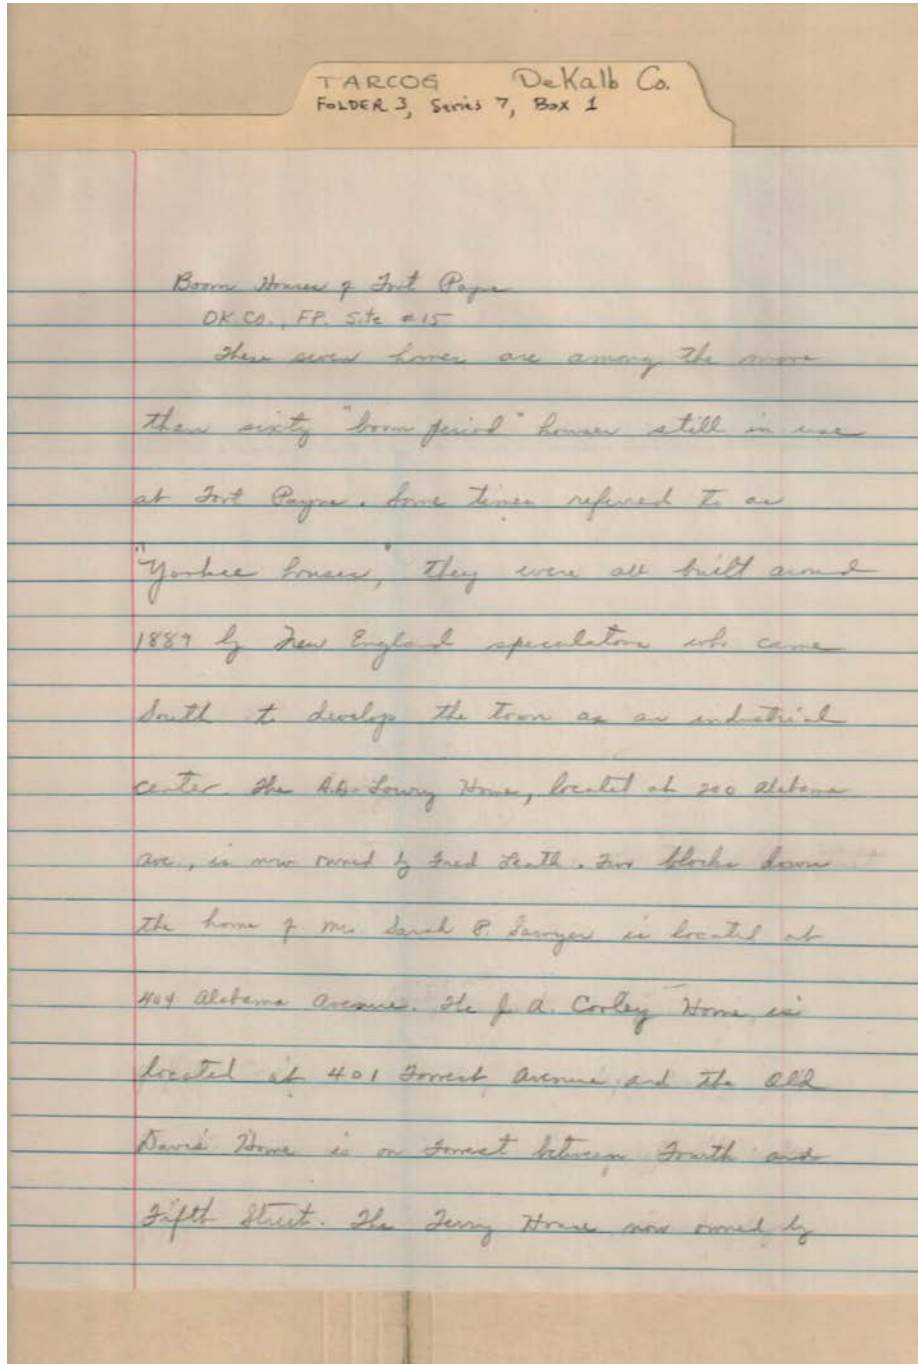 TARCOG DeKalb Co.
FOLDER 3, Series 7, Box 1
Boom Houses of Fort Payne
DK. CO., FP. Site #15
These seven homes are among the more
than sixty "boom period" houses still in use
at Fort Payne. Some times referred to as
"Yankee houses," they were all built around
1889 by New England speculators who came
South to develop the town as an industrial
center. The A.D. Lowry Home, located at 200 Alabama
ave, is now owned by Fred Leath. Two blocks down
the home of Mrs Sarah P. Sawyer is located at
404 Alabama Avenue. The J. A. Corley Home is
located at 401 Forrest Avenue and the old
Davis Home is on Forrest between Fourth and
Fifth Street. The Terry House now owned by